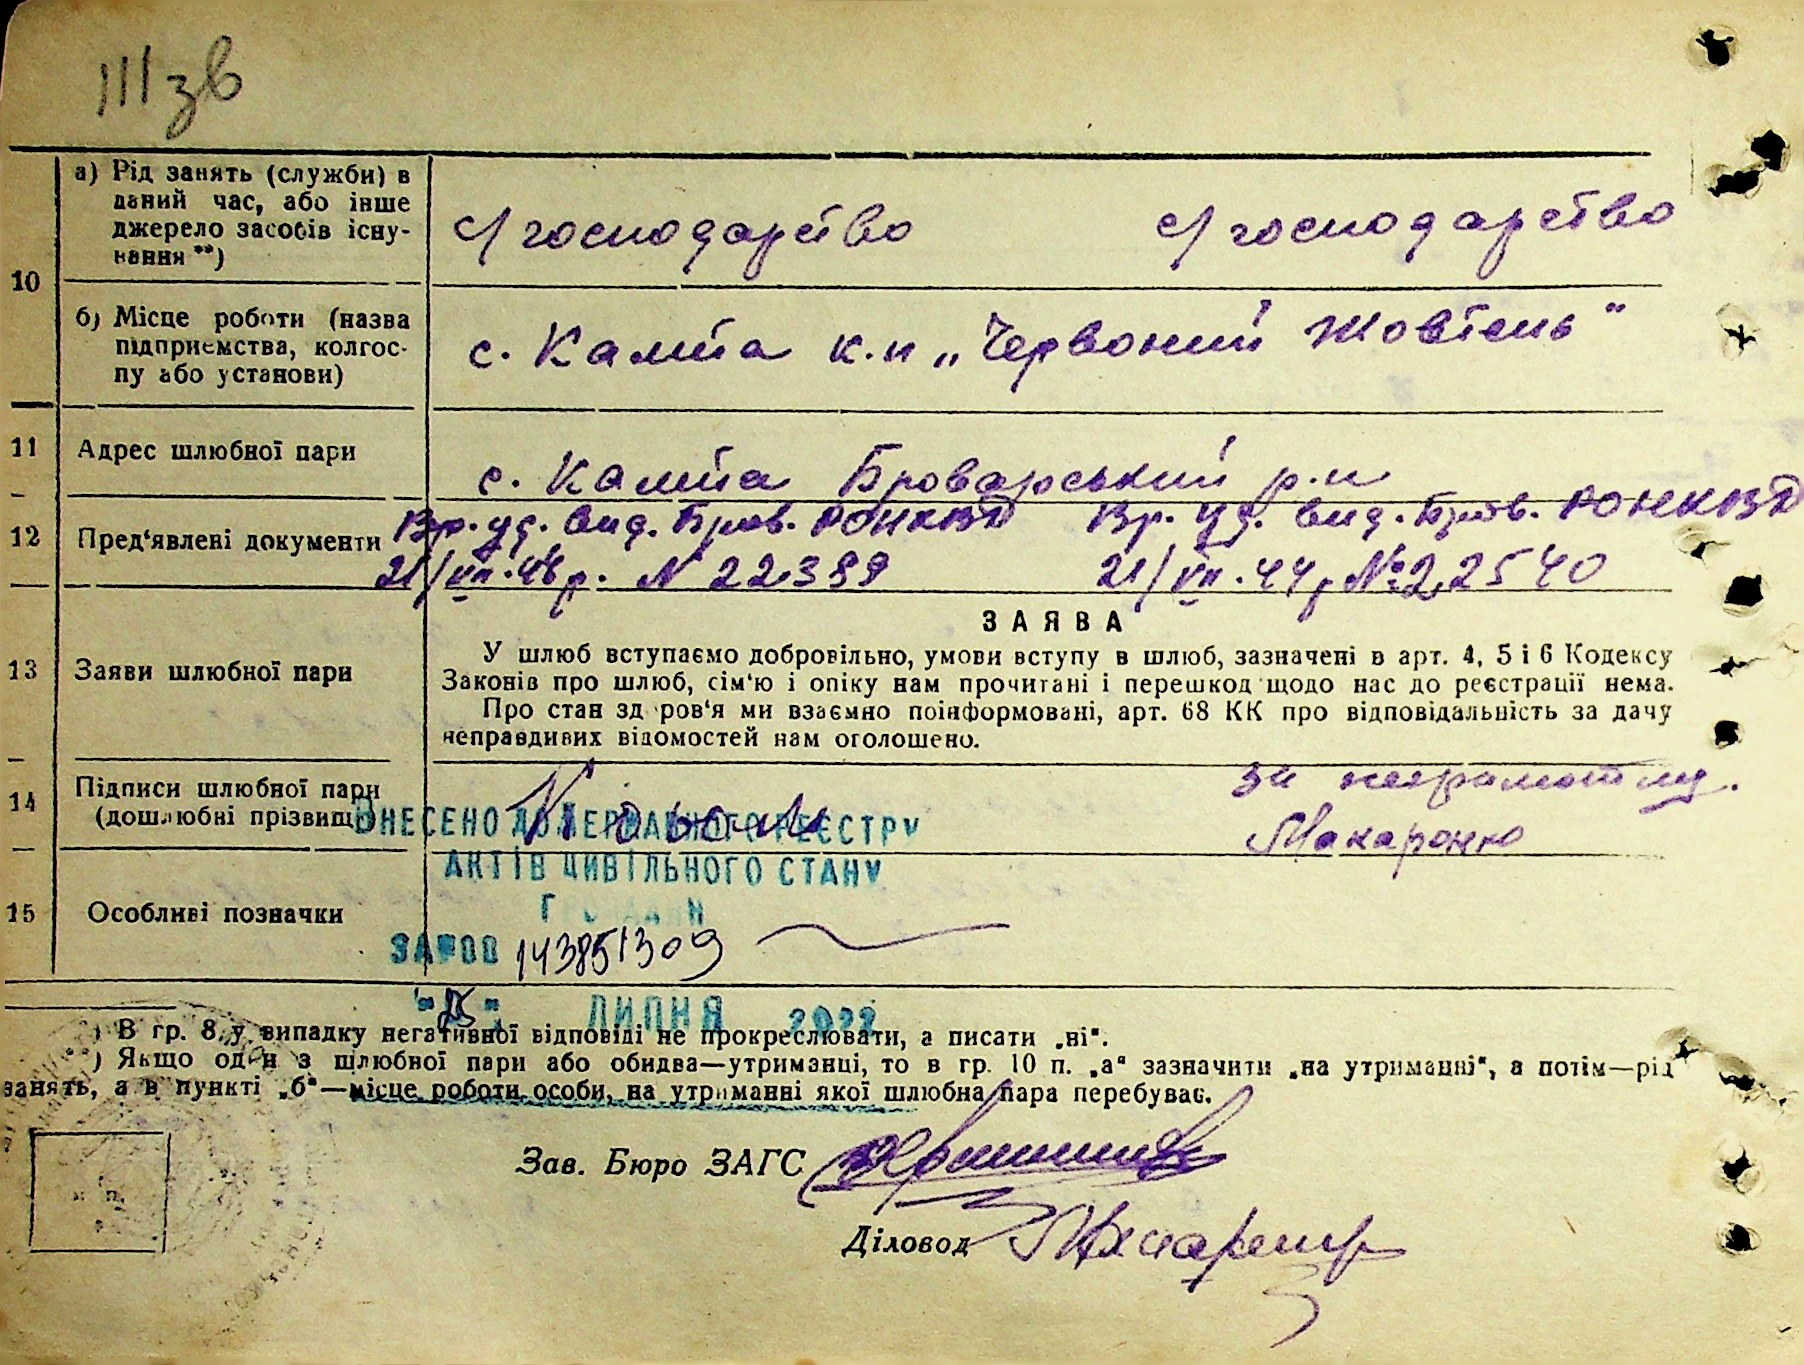 III зв
10
а) Рід занять (служби) в
даний час, або інше
джерело засобів існу-
вання **)
с/господарство с/господарство
б) Місце роботи (назва
підприємства, колгос-
пу або установи)
с. Калита к.н „Червоний Жовтень"
11 Адрес шлюбної пари
с. Калита Броварський р.н
12 Пред'явлені документи
Вр. уд. вид. Бров. РОНКВД Вр. уд. вид. Бров. РОНКВД
21/VII. 44 р. N 22389 21/VII. 44 р № 22540
13 Заяви шлюбної пари
ЗАЯВА
У шлюб вступаємо добровільно, умови вступу в шлюб, зазначені в арт. 4, 5 і 6 Кодексу
Законів про шлюб, сім'ю і опіку нам прочитані і перешкод щодо нас до реєстрації нема.
Про стан здоров'я ми взаємно поінформовані, арт. 68 КК про відповідальність за дачу
неправдивих відомостей нам оголошено.
14 Підписи шлюбної пари
(дошлюбні прізвища)
за неграмотну.
Макароню
ВНЕСЕНО ДО ДЕРЖАВНОГО РЕЄСТРУ
АКТІВ ЦИВІЛЬНОГО СТАНУ
ГРОМАДЯН
15 Особливі позначки
ЗА №00 143851309
ЛИПНЯ 2022
*) В гр. 8, у випадку негативної відповіді не прокреслювати, а писати „ні".
**) Якщо один з шлюбної пари або обидва—утриманці, то в гр. 10 п. „а" зазначити „на утриманні", а потім—рід
занять, а в пункті „б"—місце роботи особи, на утриманні якої шлюбна пара перебуває.
Зав. Бюро ЗАГС
Діловод